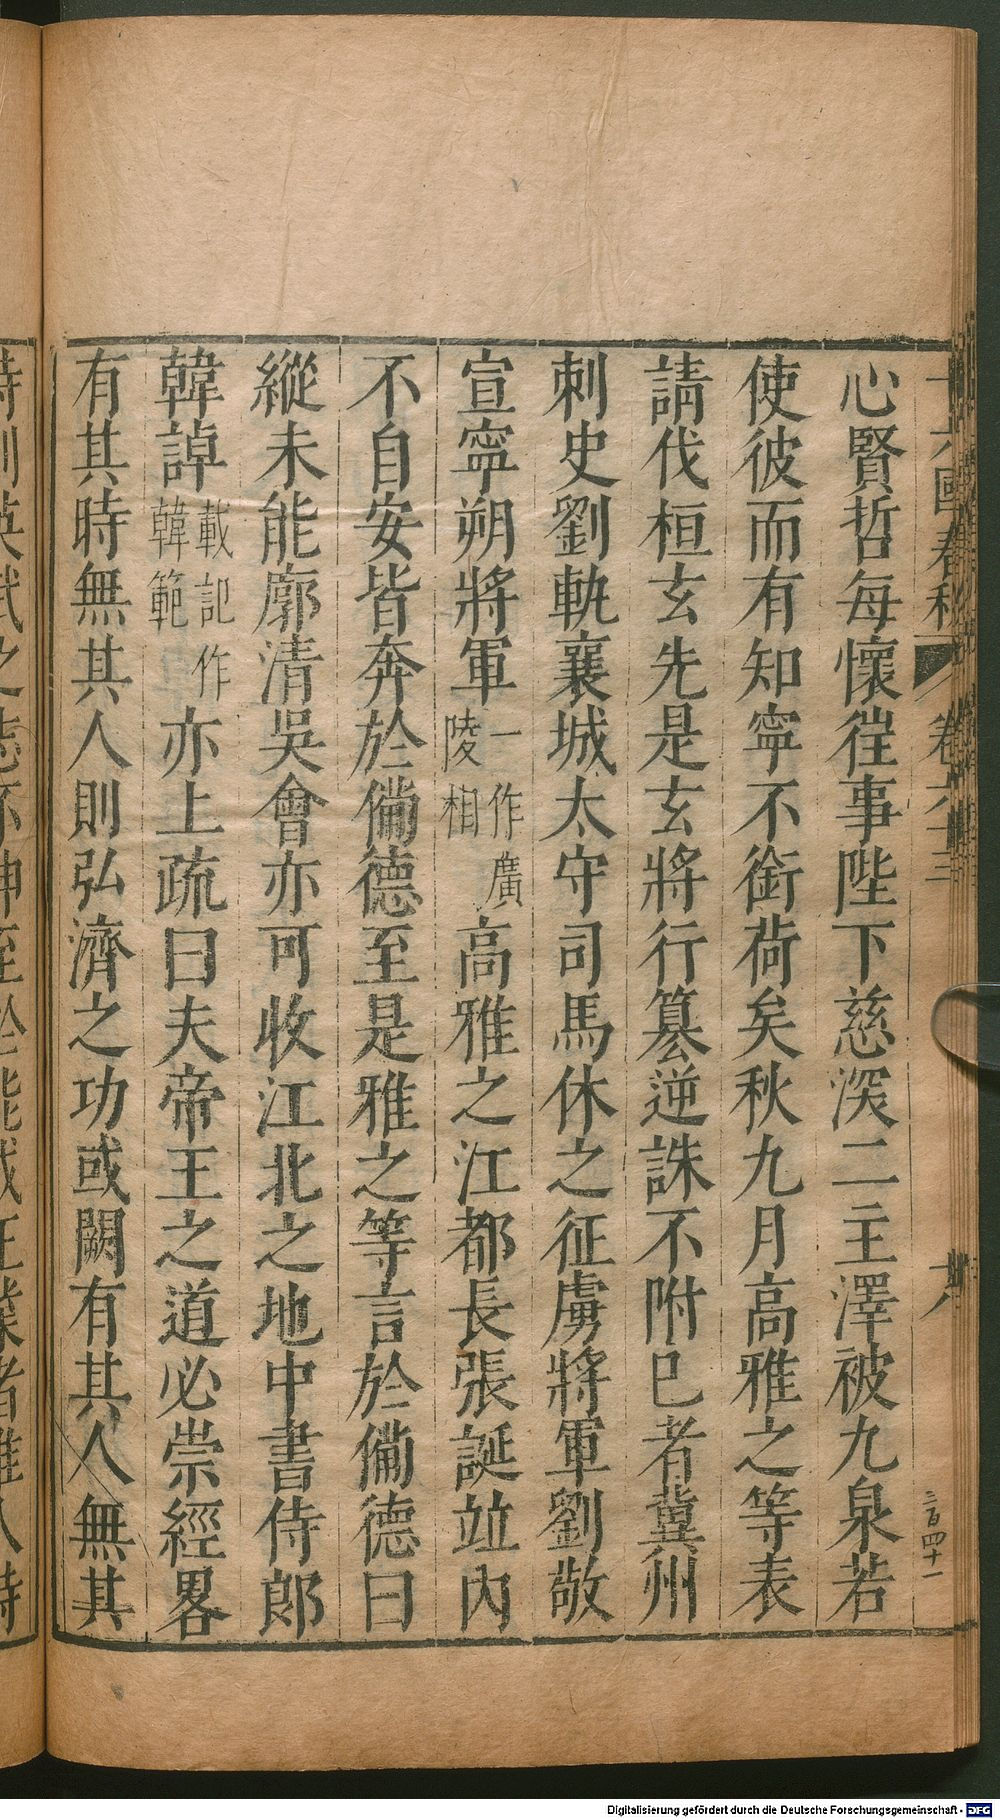 心賢哲每懷徃事陛下慈深二主澤被九泉若
使彼而有知寧不銜荷矣秋九月高雅之等表
請伐桓玄先是玄將行篡逆誅不附巳者冀州
刺史劉軌襄城太守司馬休之征虜將軍劉敬
宣寧朔將軍一作廣陵相高雅之江都長張誕竝內
不自安皆奔於備德至是雅之等言於備德曰
縱未能廓清吳會亦可收江北之地中書侍郎
韓𧨳載記作韓範亦上疏曰夫帝王之道必崇經畧
有其時無其人則弘濟之功或闕有其人無其
國春秋 卷六十三
三百四十一
Digitalisierung gefördert durch die Deutsche Forschungsgemeinschaft - DFG